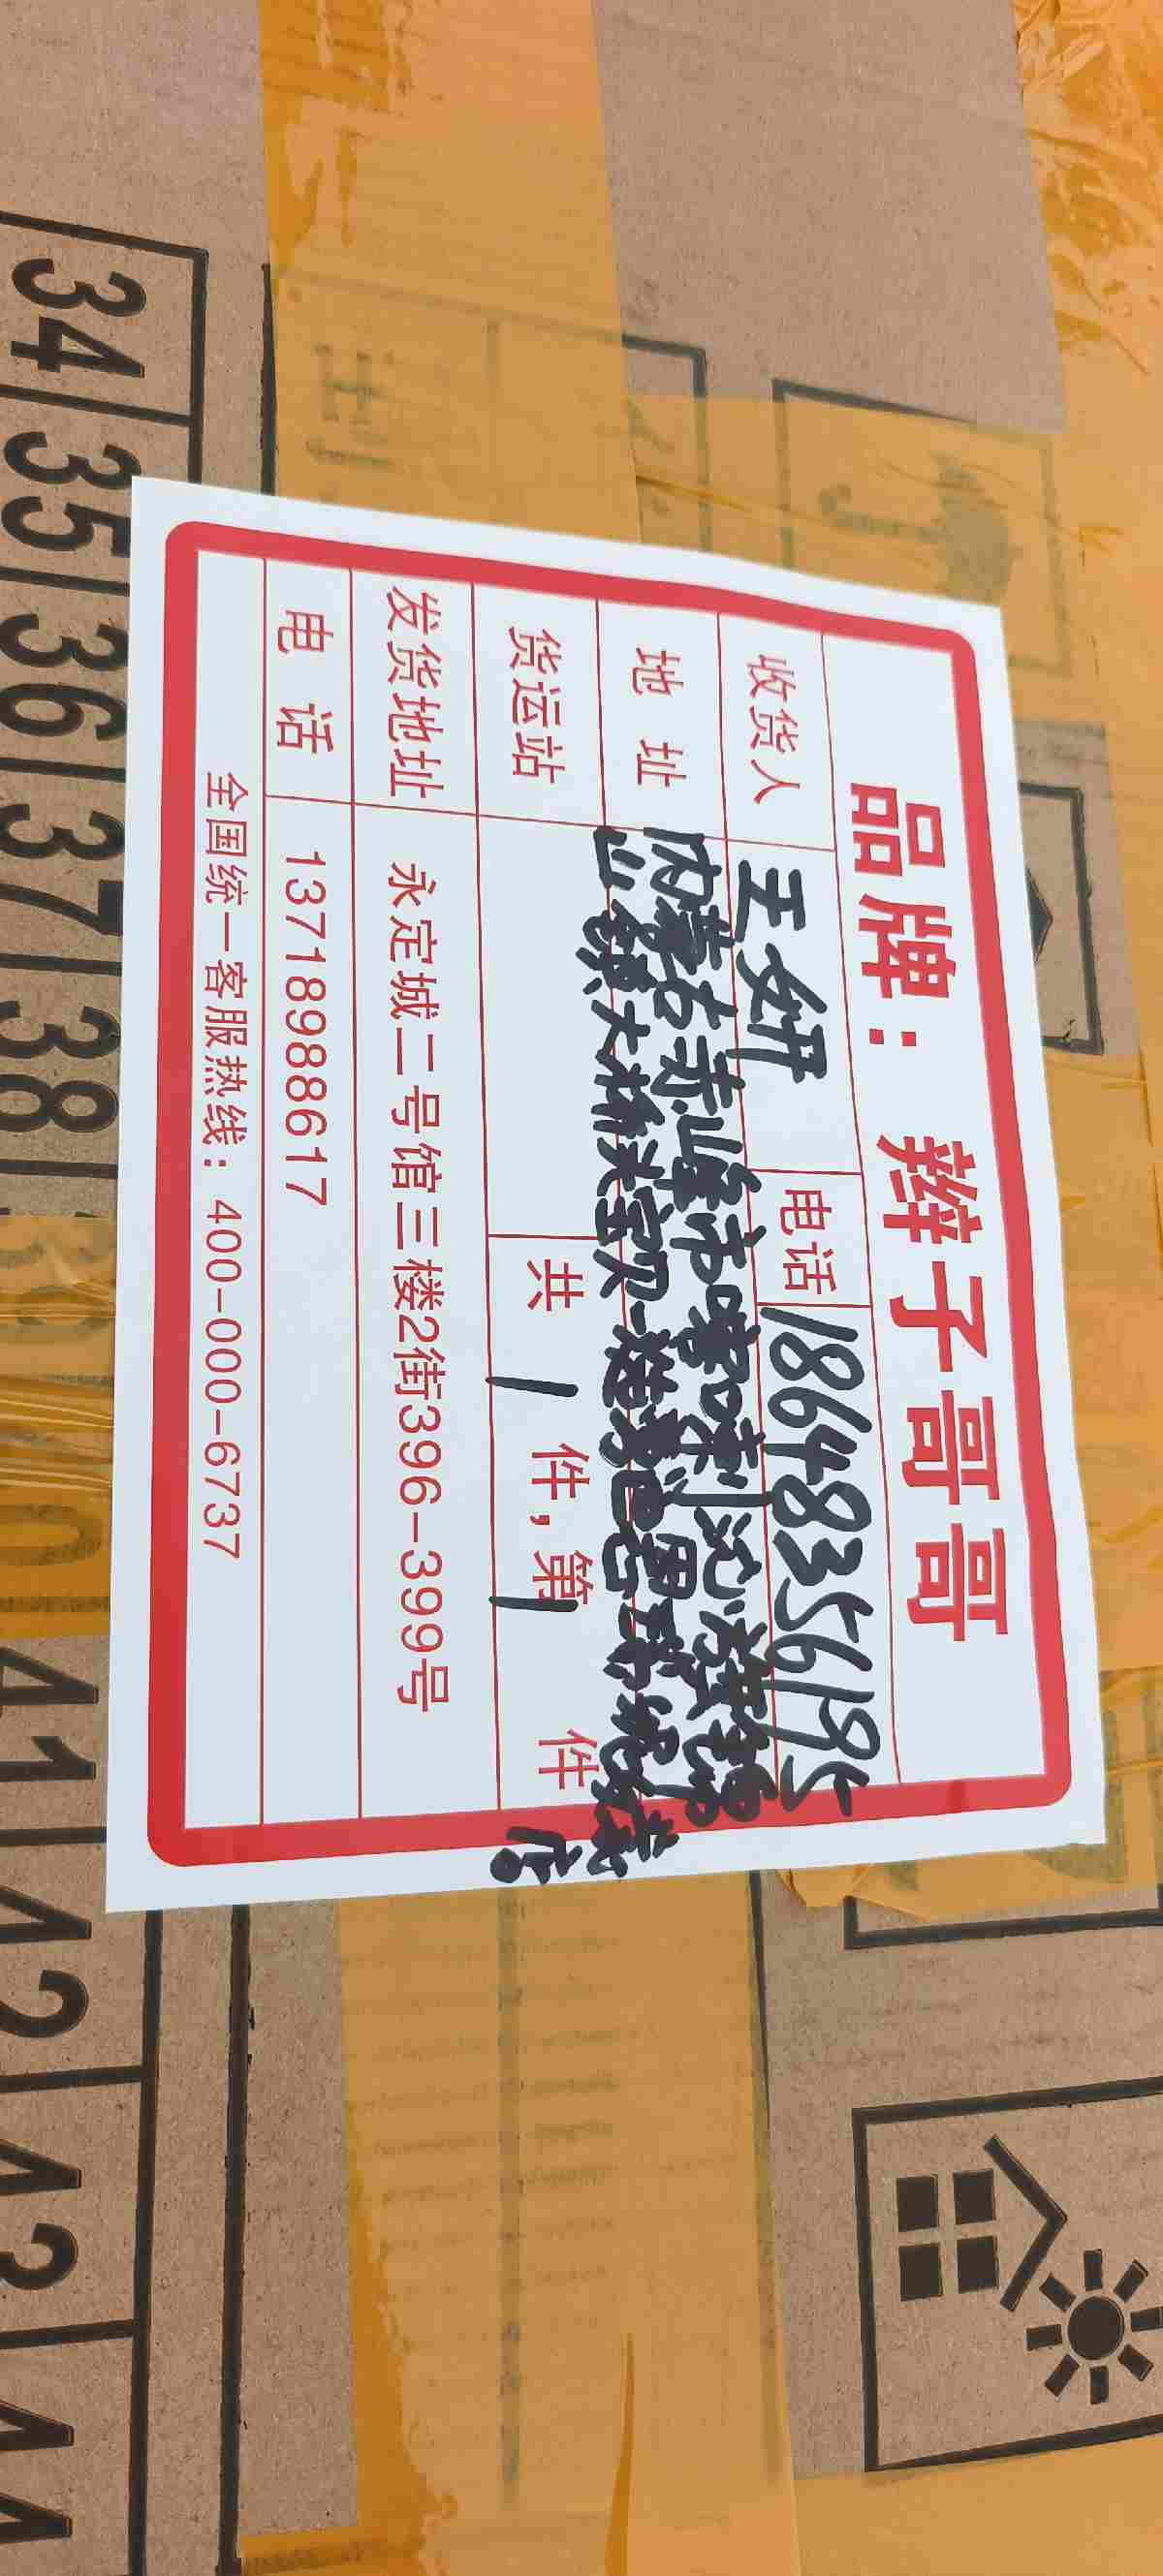 品牌：辫子哥哥
收货人 王妍 电话 18648356195
地址 内蒙古赤峰市喀喇沁旗锦
山镇大桥头宝贝一楼
店
货运站 共 1 件，第 1 件
发货地址 永定城二号馆三楼2街396-399号
电话 13718988617
全国统一客服热线：400-000-6737
34 35 36 37 38 41 42 43 44